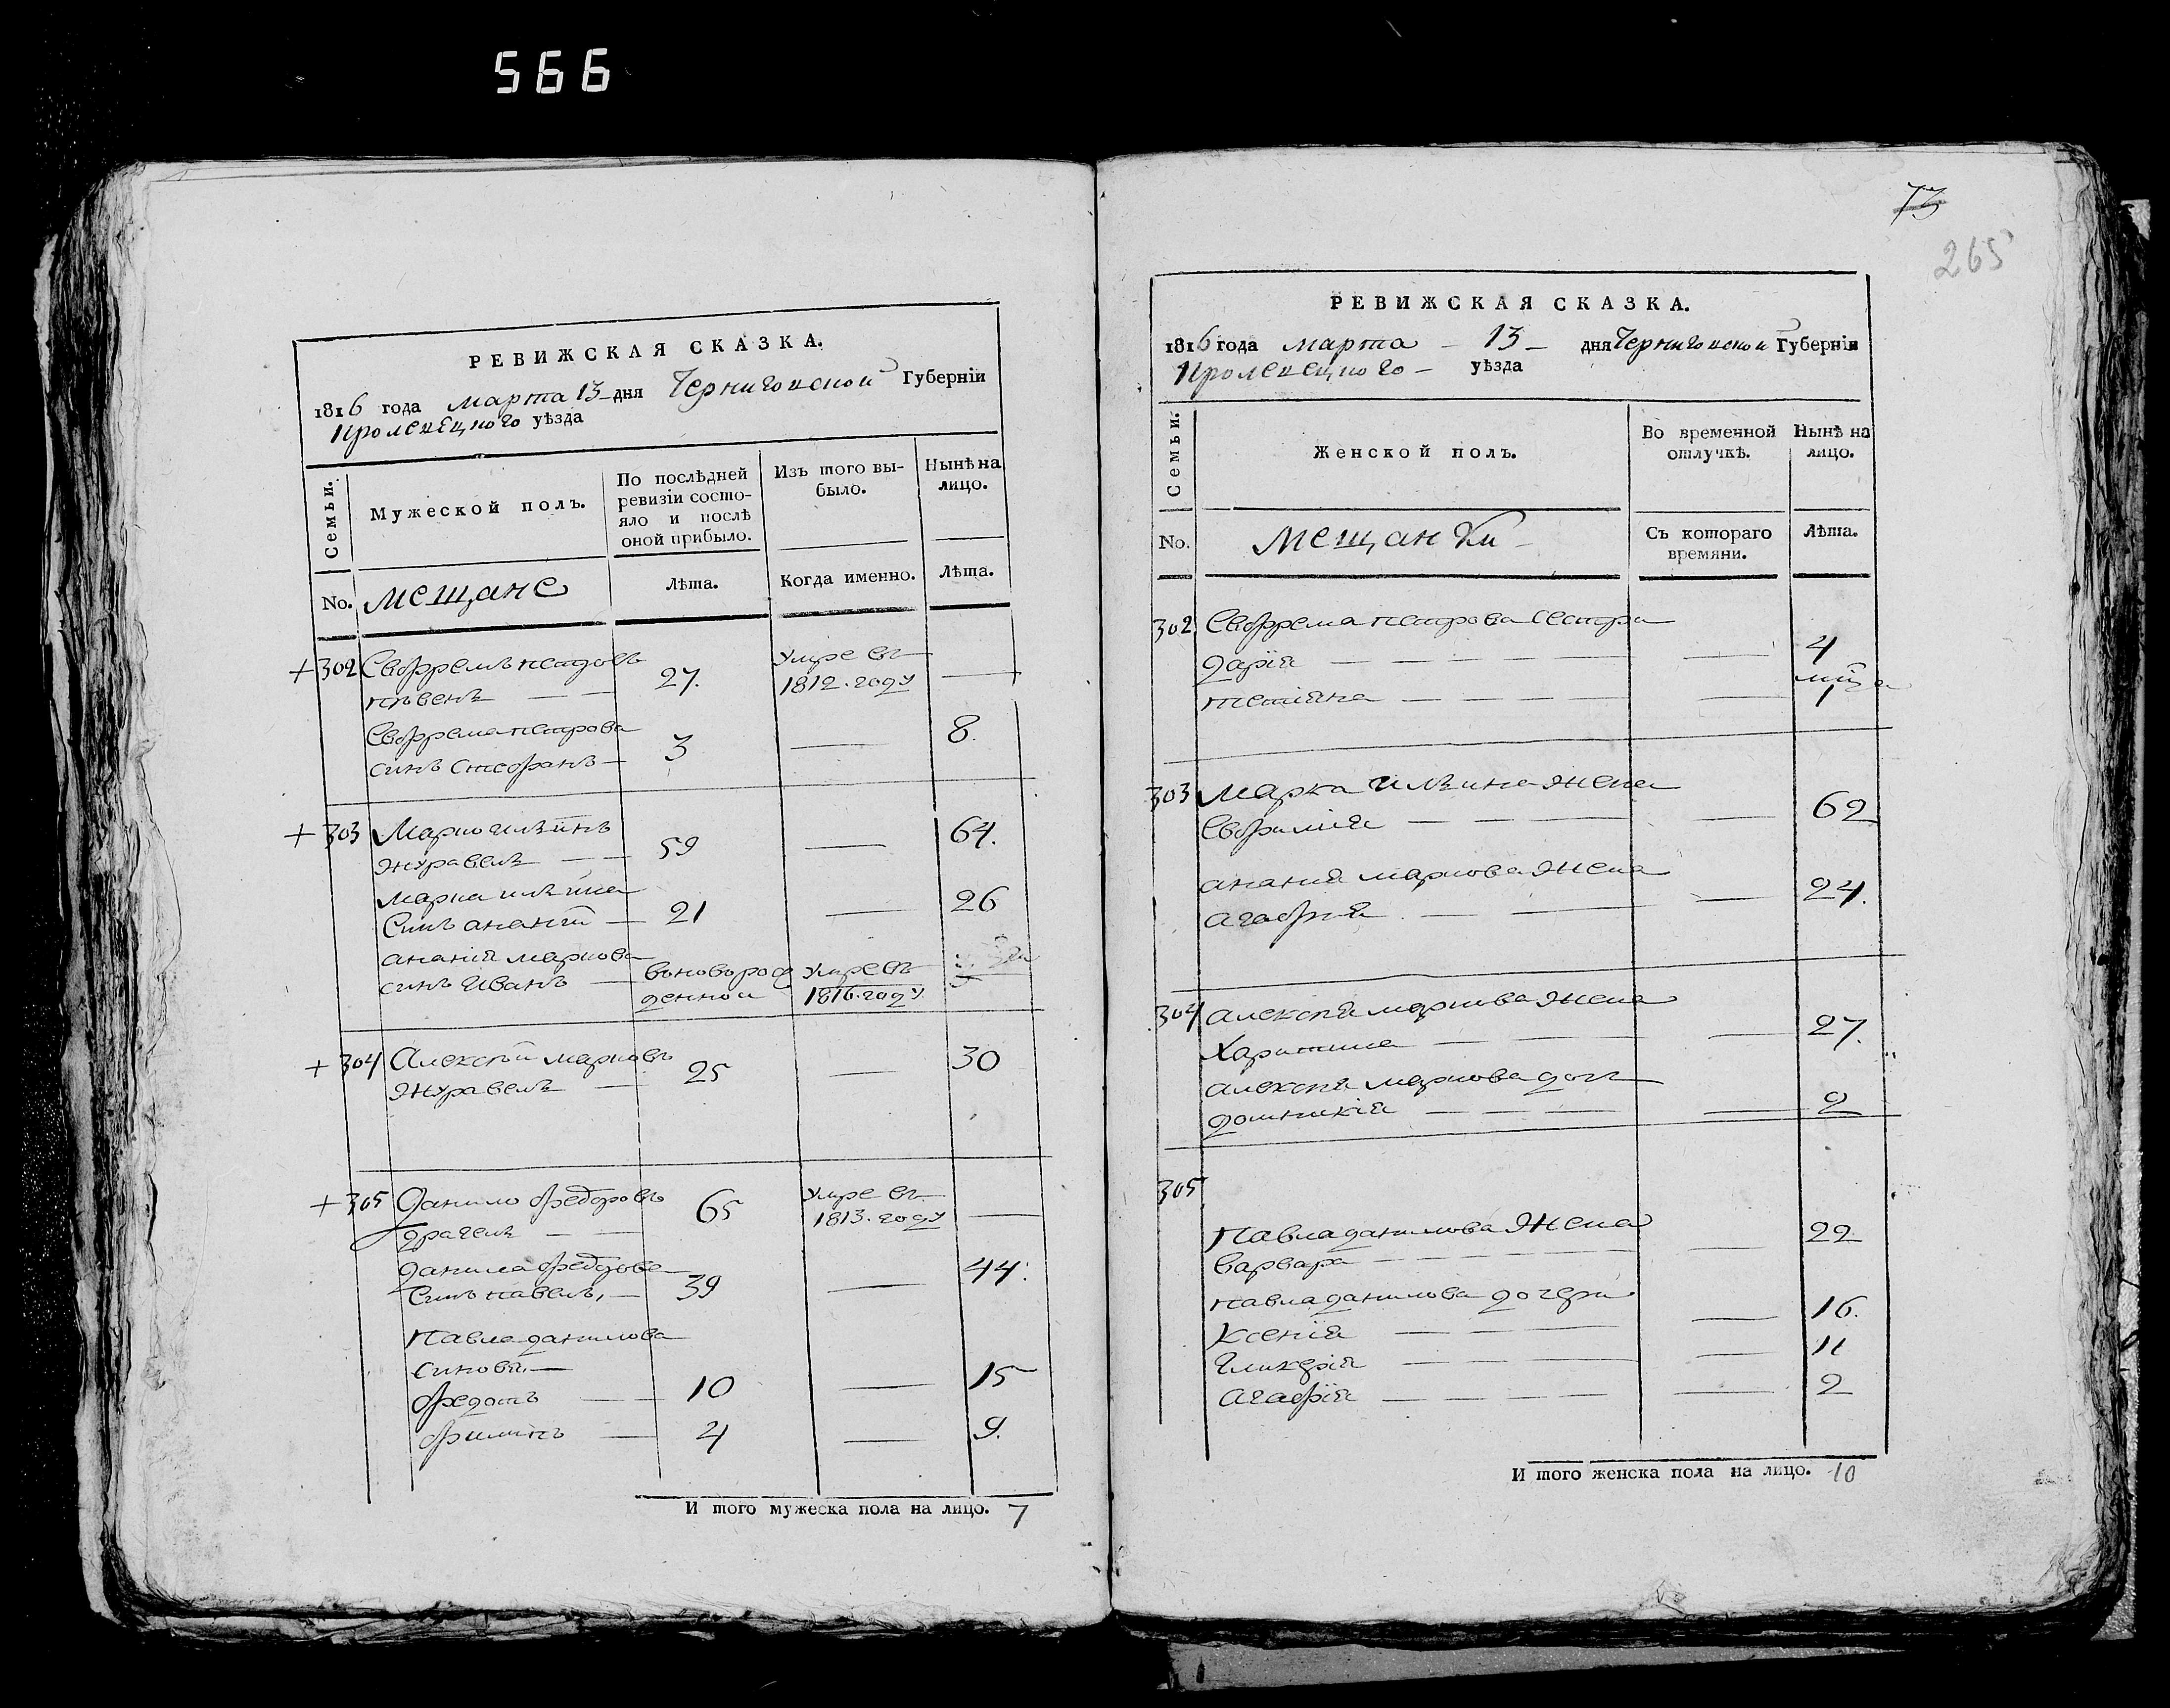 566
73
265
РЕВИЖСКАЯ СКАЗКА.
1816 года марта 13 дня Черниговской Губерніи
Кролевецкого уѣзда
Семьи.
Мужеской полъ.
По послѣдней
ревизіи состо-
яло и послѣ
оной прибыло.
Изъ того вы-
было.
Нынѣ на
лицо.
No. мещане
Лѣта.
Когда именно.
Лѣта.
+302 Евфремъ петровъ
27. умре въ
1812. году
Евфрема петрова
синъ Стефанъ 3 8.
+303 Марко илѣинъ
журавель 59 64.
марка илѣина
Синъ ананий 21 26
ананія маркова
синъ Иванъ
вановорож
денной
умре въ
1816. году
+304 Алексѣй марковъ
журавель 25 30
+305 Данило федоровъ
драгель 65
умре въ
1813. году
данила федорова
Синъ павелъ, 39 44.
Павла данилова
синовя
федотъ 10 15
филипъ 4 9.
И того мужеска пола на лицо. 7
РЕВИЖСКАЯ СКАЗКА.
1816 года марта 13 дня Черниговской Губерніи
Кролевецкого уѣзда
Семьи.
Женской полъ.
Во временной
отлучкѣ.
Нынѣ на
лицо.
No. мещанки
Съ котораго
времяни.
Лѣта.
302 Евфрема петрова Сестра
дарія 4
тетіяна 1
303 Марка илѣина жена
Евфимія 62
ананія маркова жена
агафія 24.
304 алексѣя маркова жена
Харитина 27.
алексѣя маркова доч
домникія 2
305
Павла данилова жена
варвара 22
павла данилова дочери
Ксенія 16.
Гликерія 11
агафія 2
И того женска пола на лицо. 10